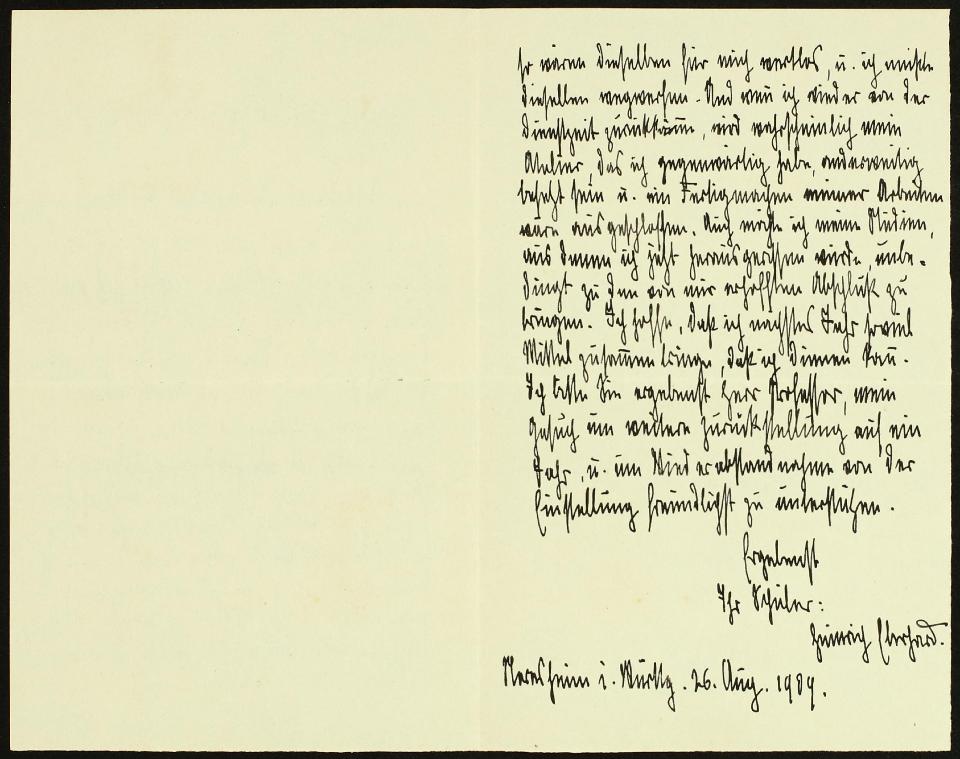 so wären dieselben für mich wertlos, u. ich müßte
dieselben wegwerfen. Und weñ ich wieder von der
Dienstzeit zurückkäme, wird wahrscheinlich mein
Atelier, das ich gegenwärtig habe, anderweitig
besetzt sein u. ein Fertigmachen meiner Arbeiten
wäre ausgeschlossen. Auch möchte ich meine Studien,
aus denen ich jetzt herausgerissen würde, unbe-
dingt zu dem von mir erhofften Abschluß zu
bringen. Ich hoffe, daß ich nächstes Jahr soviel
Mittel zusam̄en bringe, daß ich dienen kañ.
Ich bitte Sie ergebenst Herr Professor, mein
Gesuch um weitere Zurückstellung auf ein
Jahr, u. um Wiederabstandnahme von der
Einstellung freundlichst zu unterstützen.
Ergebenst
Ihr Schüler:
Heinrich Eberhard.
Neresheim i. Württg. 26. Aug. 1909.